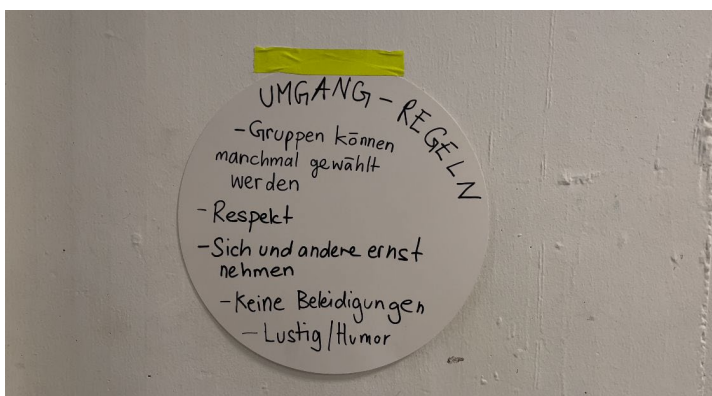 UMGANG - REGELN
- Gruppen können
manchmal gewählt
werden
- Respekt
- Sich und andere ernst
nehmen
- Keine Beleidigungen
- Lustig/Humor